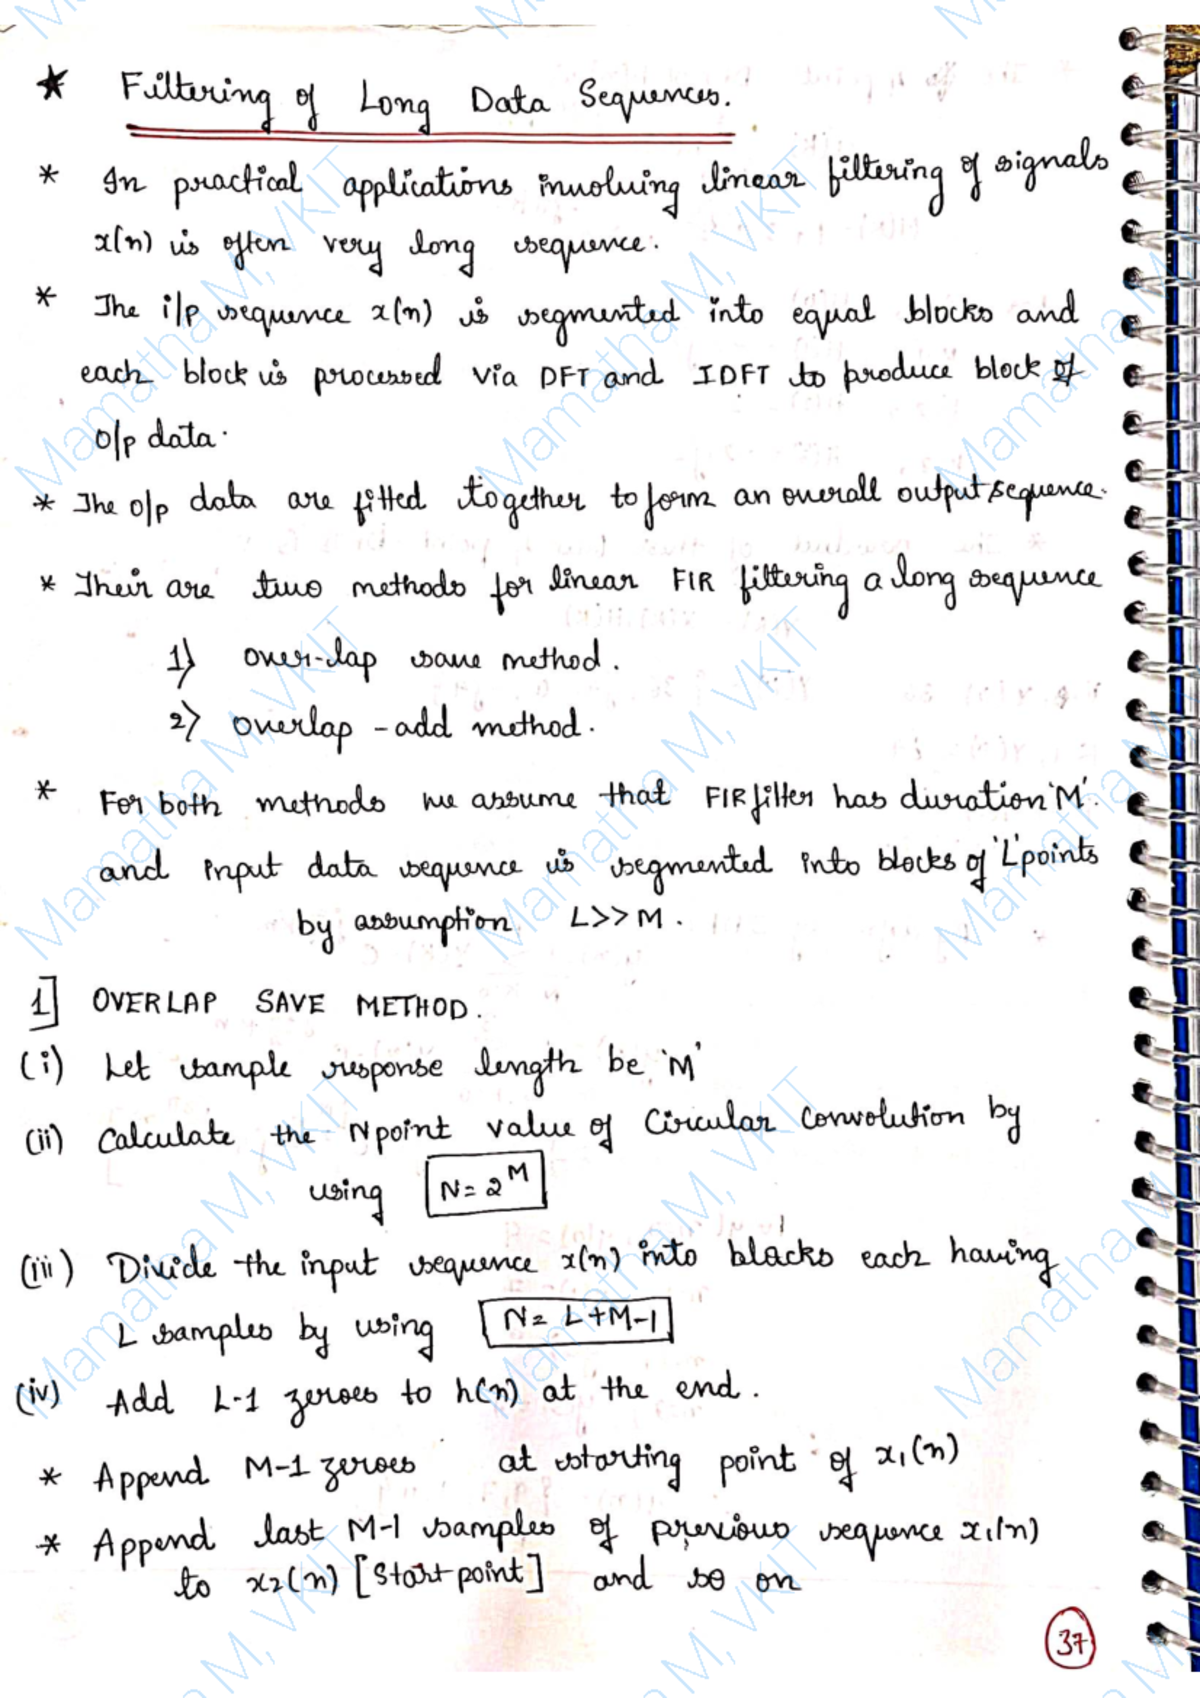 ★ Filtering of Long Data Sequences.
* In practical applications involving linear filtering of signals
x(n) is often very long sequence.
* The i/p sequence x(n) is segmented into equal blocks and
each block is processed via DFT and IDFT to produce block of
o/p data.
* The o/p data are fitted together to form an overall output sequence.
* Their are two methods for linear FIR filtering a long sequence
1) over-lap save method.
2) overlap - add method.
* For both methods we assume that FIR filter has duration 'M'.
and input data sequence is segmented into blocks of 'L' points
by assumption L>>M.
1] OVERLAP SAVE METHOD.
(i) Let sample response length be 'M'
(ii) Calculate the N point value of Circular Convolution by
using N= 2^M
(iii) Divide the input sequence x(n) into blacks each having
L samples by using N= L+M-1
(iv) Add L-1 zeroes to h(n) at the end.
* Append M-1 zeroes at starting point of x₁(n)
* Append last M-1 samples of previous sequence x₁(n)
to x₂(n) [Start point] and so on
37
Mamatha M, VKIT